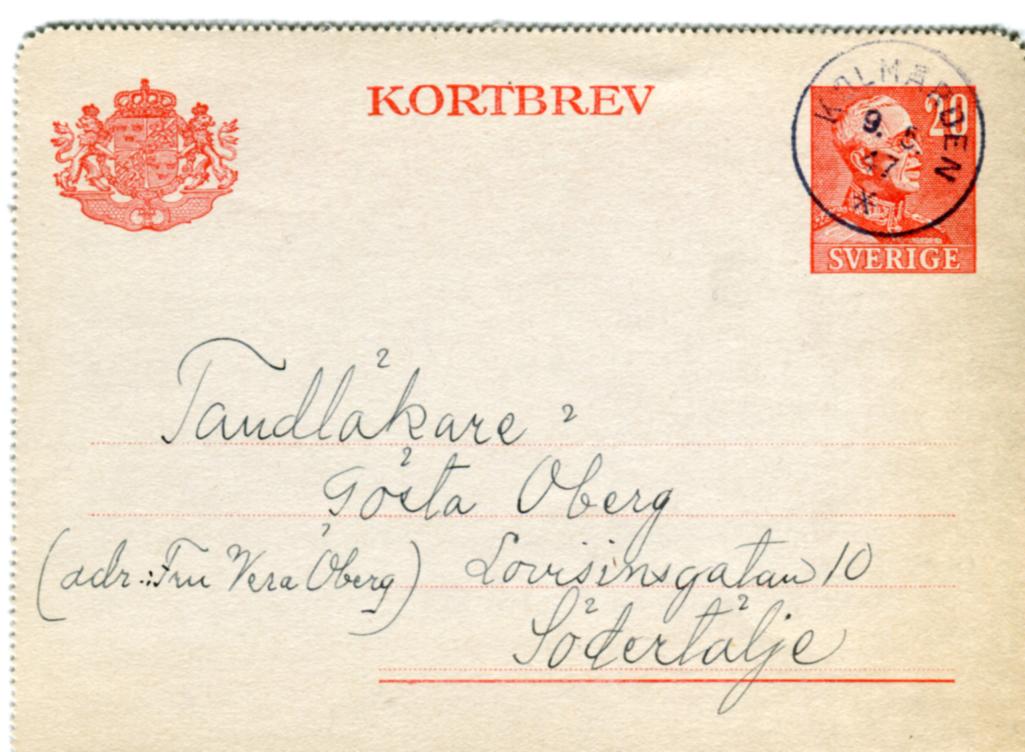 KORTBREV
20
KOLMÅRDEN
9. 5.
47
SVERIGE
Tandläkare
Gösta Öberg
(adr.: Fru Vera Öberg) Lovisinsgatan 10
Södertälje